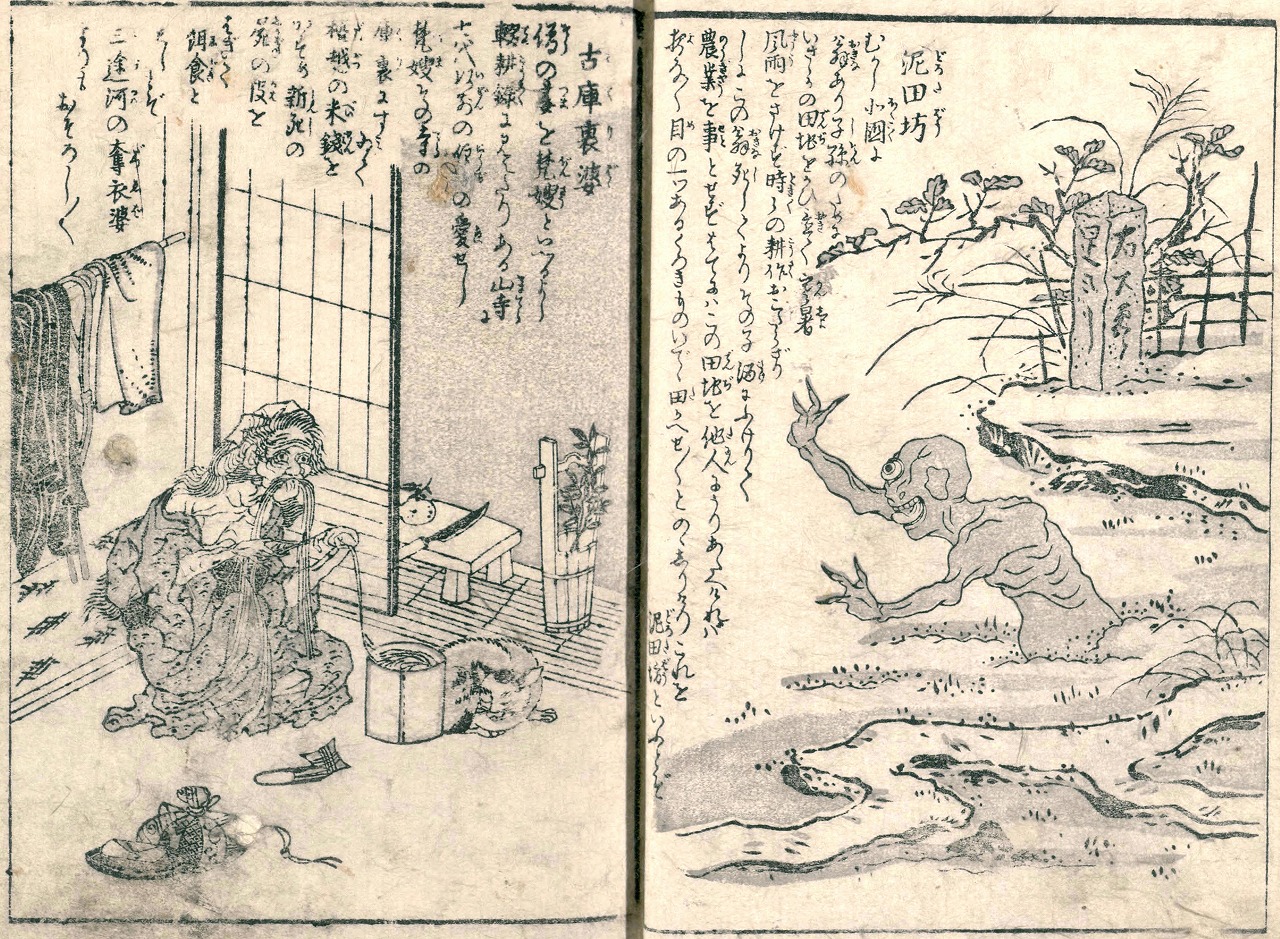 泥田坊
むかし北国に
翁あり子孫のために
いさゝかの田地をかひ置て寒暑
風雨をさけず時〳〵の耕作おこたらざり
しにこの翁死してよりその子酒にふけりて
農業を事とせずはてにはこの田地を他人にうりあたへければ
夜な〳〵目の一つあるくろきものいでゝ田かへせ〳〵とのゝしりけりこれを
泥田坊といふとぞ
古庫裏婆
僧の妻を梵嫂といへるよし
輟耕録に見えたりある山寺に
七代以前の住持の愛せし
梵嫂その寺の
庫裏にすみゐて
檀越の米銭を
かすめ新死の
屍の皮を
はぎて
餌食と
せしとぞ
三途河の奪衣婆
よりもおそろし〳〵